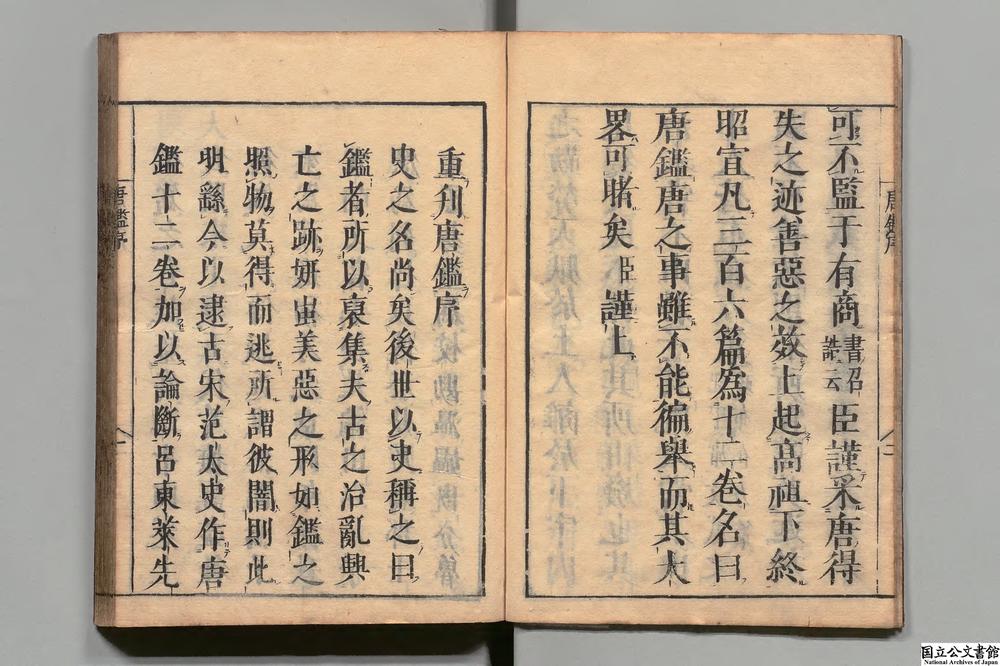 可不監于有商書召誥云臣謹采唐得
失之迹善惡之效上起高祖下終
昭宣凡三百六篇為十二卷名曰
唐鑑唐之事雖不能徧舉而其大
畧可睹矣臣謹上
唐鑑序
二
重刋唐鑑序
史之名尚矣後世以史稱之曰
鑑者所以裒集夫古之治亂興
亡之跡妍虫美惡之形如鑑之
照物莫得而逃所謂彼闇則此
明繇今以逮古宋范太史作唐
鑑十二卷加以論斷呂東萊先
唐鑑序
一
国立公文書館
National Archives of Japan